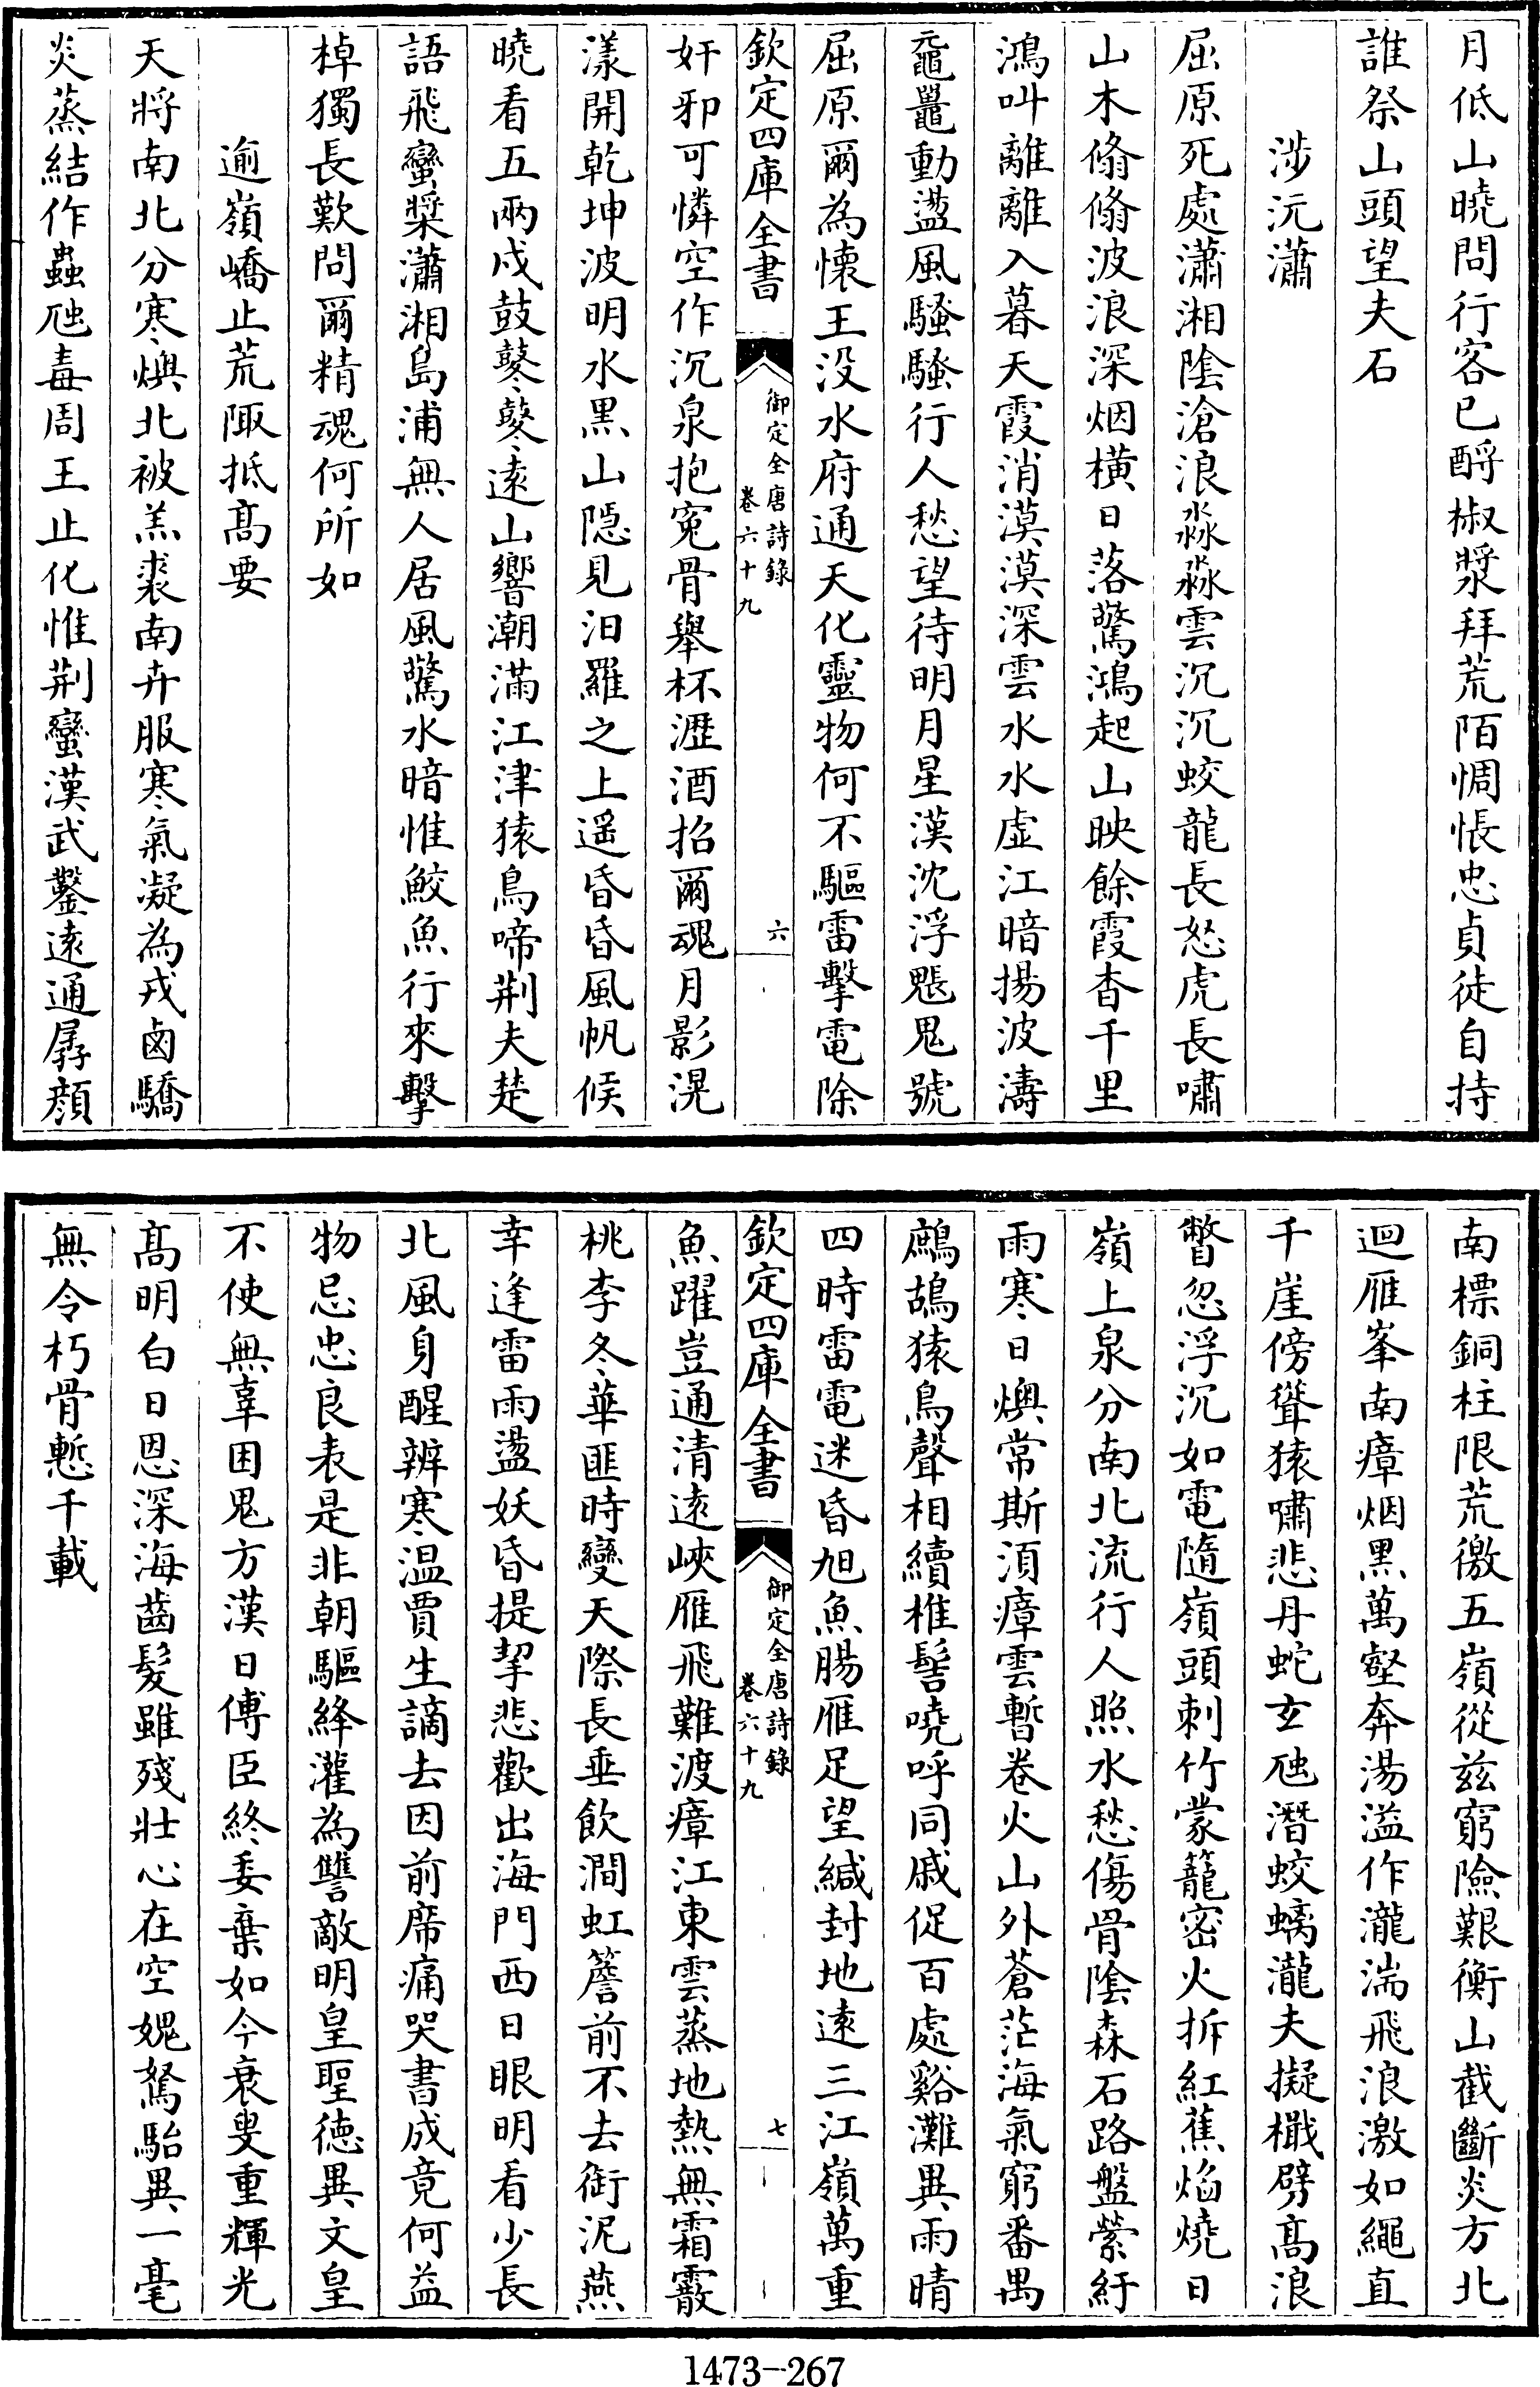 月低山曉問行客已酹椒漿拜荒陌惆悵忠貞徒自持
誰祭山頭望夫石
涉沅瀟
屈原死處瀟湘陰滄浪淼淼雲沉沉蛟龍長怒虎長嘯
山木翛翛波浪深烟橫日落驚鴻起山映餘霞杳千里
鴻叫離離入暮天霞消漠漠深雲水水虛江暗揚波濤
黿鼉動盪風騷騷行人愁望待明月星漢沈浮鬿鬼號
屈原爾為懷王没水府通天化靈物何不驅雷擊電除
欽定四庫全書
御定全唐詩錄
卷六十九
六
奸邪可憐空作沉泉抱寃骨舉杯瀝酒招爾魂月影滉
漾開乾坤波明水黑山隱見汨羅之上遥昏昏風帆候
曉看五兩戍鼓鼕鼕遠山響潮滿江津猿鳥啼荆夫楚
語飛蠻槳瀟湘島浦無人居風驚水暗惟鮫魚行來擊
棹獨長歎問爾精魂何所如
逾嶺嶠止荒陬抵髙要
天將南北分寒燠北被羔裘南卉服寒氣凝為戎鹵驕
炎蒸結作蟲虺毒周王止化惟荆蠻漢武鑿遠通孱顔
南標銅柱限荒徼五嶺從兹窮險艱衡山截斷炎方北
迴雁峯南瘴烟黑萬壑奔湯溢作瀧湍飛浪激如繩直
千崖傍聳猿嘯悲丹蛇玄虺潛蛟螭瀧夫擬檝劈髙浪
瞥忽浮沉如電隨嶺頭刺竹蒙籠密火拆紅蕉焰燒日
嶺上泉分南北流行人照水愁傷骨陰森石路盤縈紆
雨寒日燠常斯須瘴雲暫卷火山外蒼茫海氣窮番禺
鷓鴣猿鳥聲相續椎髻嘵呼同戚促百處谿灘異雨晴
四時雷電迷昏旭魚腸雁足望緘封地遠三江嶺萬重
欽定四庫全書
御定全唐詩錄
卷六十九
七
魚躍豈通清遠峽雁飛難渡瘴江東雲蒸地熱無霜霰
桃李冬華匪時變天際長垂飲澗虹簷前不去銜泥燕
幸逢雷雨盪妖昏提挈悲歡出海門西日眼明看少長
北風身醒辨寒温賈生謫去因前席痛哭書成竟何益
物忌忠良表是非朝驅絳灌為讐敵明皇聖德異文皇
不使無辜困鬼方漢日傅臣終委棄如今衰叟重輝光
髙明白日恩深海齒髮雖殘壯心在空媿駑駘異一毫
無令朽骨慙千載
1473-267